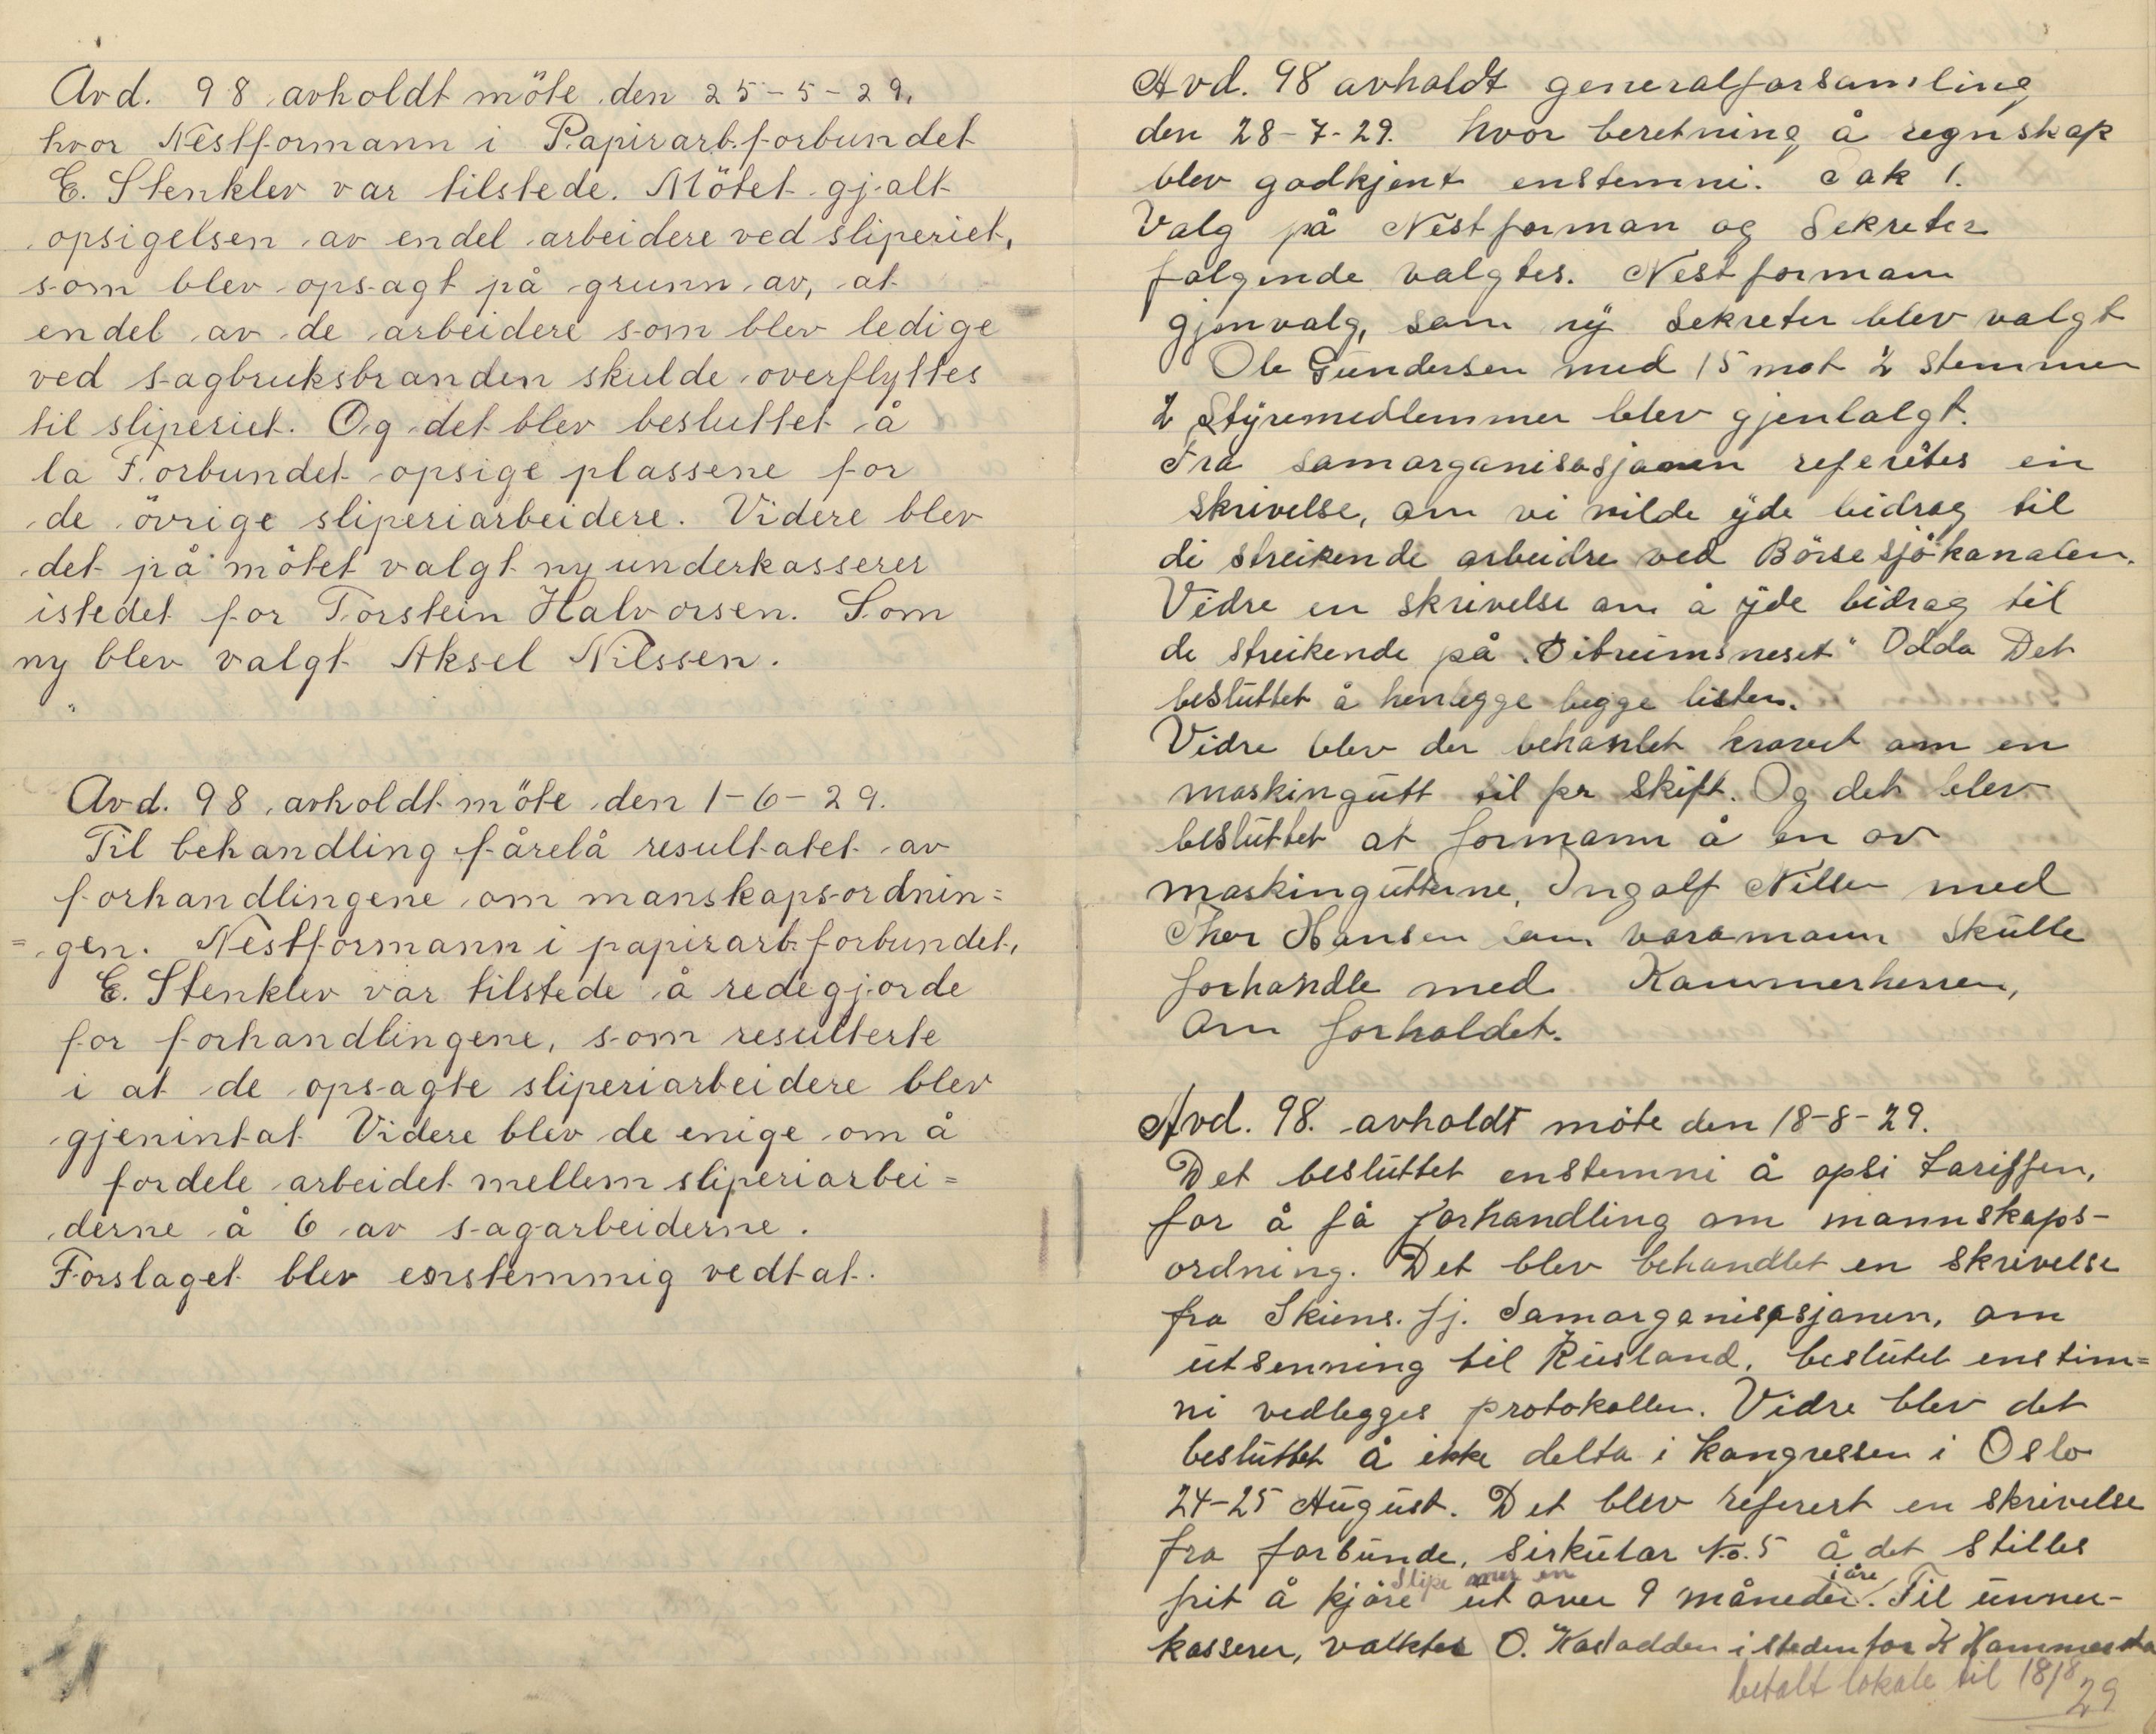 Avd. 98 avholdt möte den 25-5-29.
hvor Nestformann i Papirarb.forbundet
E. Stenklev var tilstede. Mötet gjalt
opsigelsen av endel arbeidere ved sliperiet,
som blev opsagt på grunn av, at
endel av de arbeidere som blev ledige
ved sagbruksbranden skulde overflyttes
til sliperiet. Og det blev besluttet å
la Forbundet opsige plassene for
de övrige sliperiarbeidere. Videre blev
det på mötet valgt ny underkasserer
istedet for Torstein Halvorsen. Som
ny blev valgt Aksel Nilssen.
Avd. 98 avholdt möte den 1-6-29.
Til behandling fårelå resultatet av
forhandlingene om manskapsordnin=
=gen. Nestformann i papirarb.forbundet,
E. Stenklev var tilstede å redegjorde
for forhandlingene, som resulterte
i at de opsagte sliperiarbeidere blev
gjenintat Videre blev de enige om å
fordele arbeidet mellem sliperiarbei=
derne å 6 av sagarbeiderne.
Forslaget blev enstemmig vedtat.
Avd. 98 avholdt generalforsamling
den 28-7-29. hvor beretning å regnskap
blev godkjent enstemni. Sak 1.
Valg på Nestforman og Sekretær
følgende valgtes. Nestformann
gjenvalg, som ny Sekreter blev valgt
Ole Gundersen med 15 mot 2 stemmer
2 Styremedlemmer blev gjenlalgt.
Fra samorganisasjonen referetes en
skrivelse, om vi vilde yde bidrag til
di streikende arbeidre ved Börsesjökanalen.
Vidre en skrivelse om å yde bidrag til
de streikende på "Eitreimsneset" Odda Det
besluttet å henlegge begge listen.
Vidre blev der behanlet kravet om en
maskingutt til pr skift. Og det blev
besluttet at formann å en av
maskinguttene, Ingolf Nilsen med
Thor Hansen som varamann skulle
forhandle med Kammerherren,
om forholdet.
Avd. 98. avholdt möte den 18-8-29.
Det besluttet enstemni å opsi tariffen,
for å få forhandling om mannskaps-
ordning. Det blev behandlet en skrivelse
fra Skiens. fj. Samorganisasjonen, om
utsenning til Rusland, beslutet enstim=
ni vedlegges protokollen. Vidre blev det
besluttet å ikke delta i kongressen i Oslo
24-25 August. Det blev referert en skrivelse
fra forbunde, sirkular No. 5 å det stilles
slipe mer en
i åre
frit å kjöre ut over 9 måneder. Til unner-
kasserer, valktes O. Kastadden isteden for K Hammersta
betalt lokale til 18/8 29